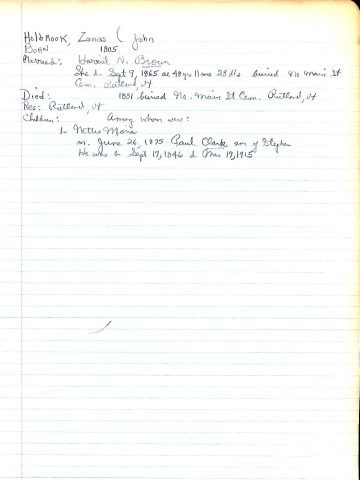 Holbrook, Zenas ( John
Born 1805
Married: Harriet N. Brown
She d. Sept 9, 1865 ae 48 yrs 11 mos 28 d's buried No. Main St
Cem. Rutland, Vt
Died: 1881 buried No. Main St Cem. Rutland, Vt
Res: Rutland, Vt
Children: Among whom were:
1- Nettie Maria
m. June 26, 1875 Paul Clark son of Stephen
He was b Sept 17, 1846 d Mar 19, 1915